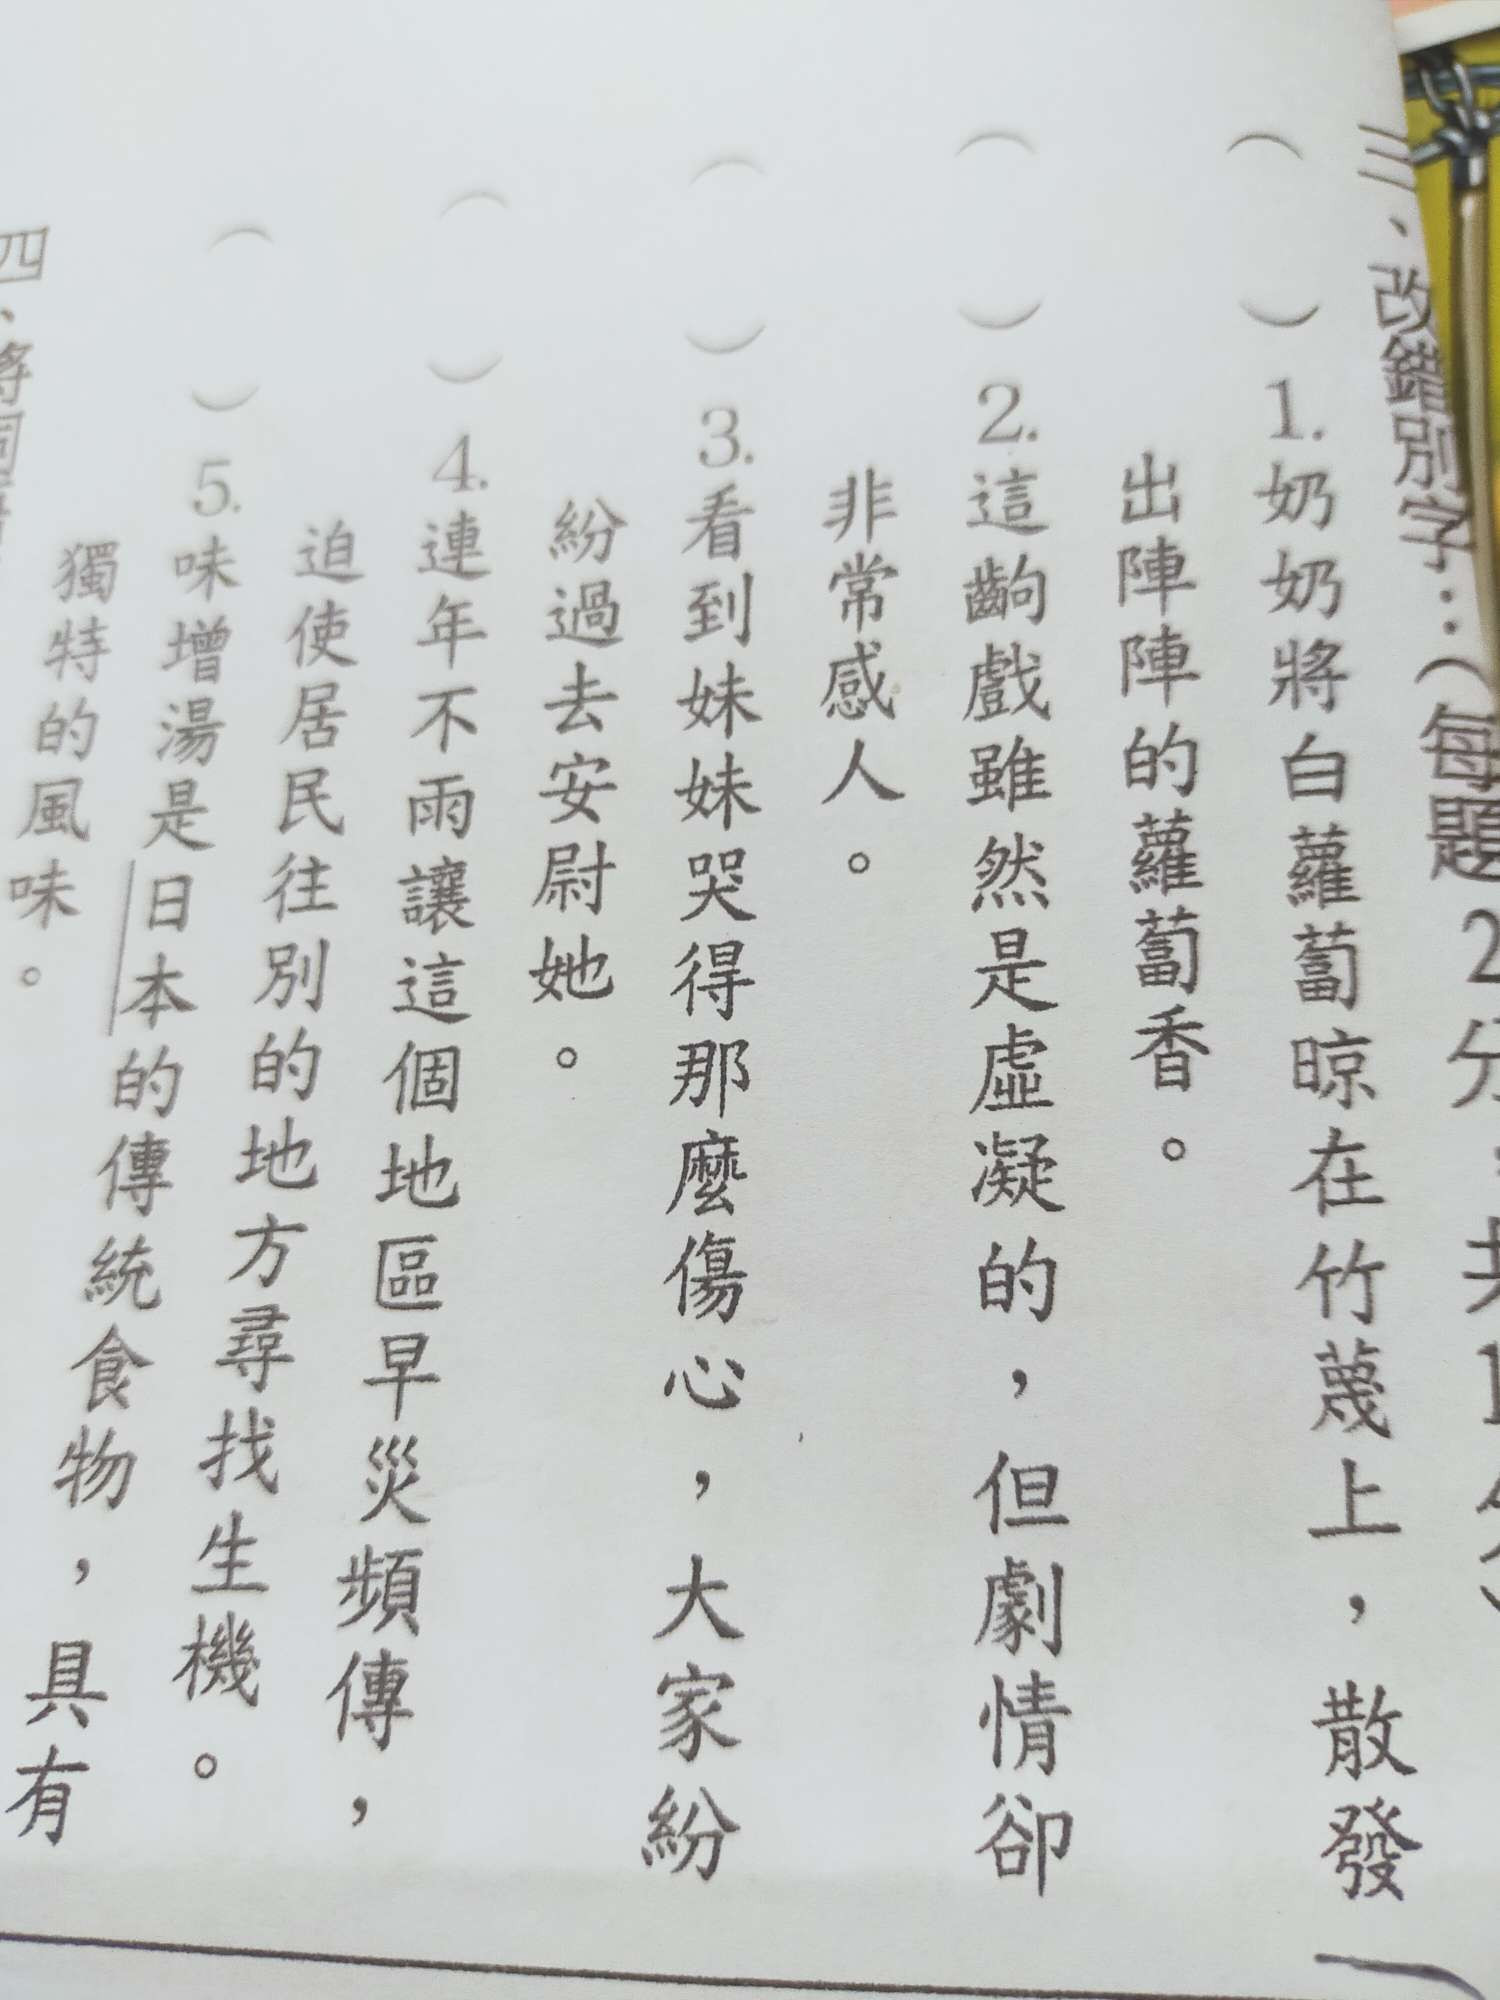 三、改錯別字：（每題2分，共1 分）
（　）1.奶奶將白蘿蔔晾在竹蔑上，散發
出陣陣的蘿蔔香。
（　）2.這齣戲雖然是虛凝的，但劇情卻
非常感人。
（　）3.看到妹妹哭得那麼傷心，大家紛
紛過去安尉她。
（　）4.連年不雨讓這個地區早災頻傳，
迫使居民往別的地方尋找生機。
（　）5.味增湯是日本的傳統食物，具有
獨特的風味。
四、將